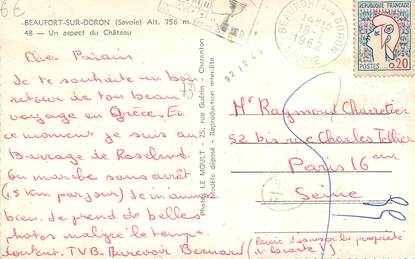 6€
BEAUFORT-SUR-DORON (Savoie) Alt. 756 m.
48 — Un aspect du Château
Cher Parrain
Je te souhaite un bon
retour de ton beau
voyage en Grèce. En
ce moment je suis au
Barrage de Roselend.
On marche sans arrêt
(15 km par jour) Je m'amuse
bien. Je prend de belles
photos malgré le temps
T.V.B. Aurevoir Bernard
(Prière d'essuyer la propriété
Photos LE MOULT - 25, rue Guérin - Charenton
Modèle déposé - Reproduction interdite
92 12 49
73
SUR DORON
1962
SAVOIE
REPUBLIQUE FRANÇAISE
POSTES 0,20
Mr Raymond Charretier
52 bis rue Charles Tellier
Paris 16 em
Seine